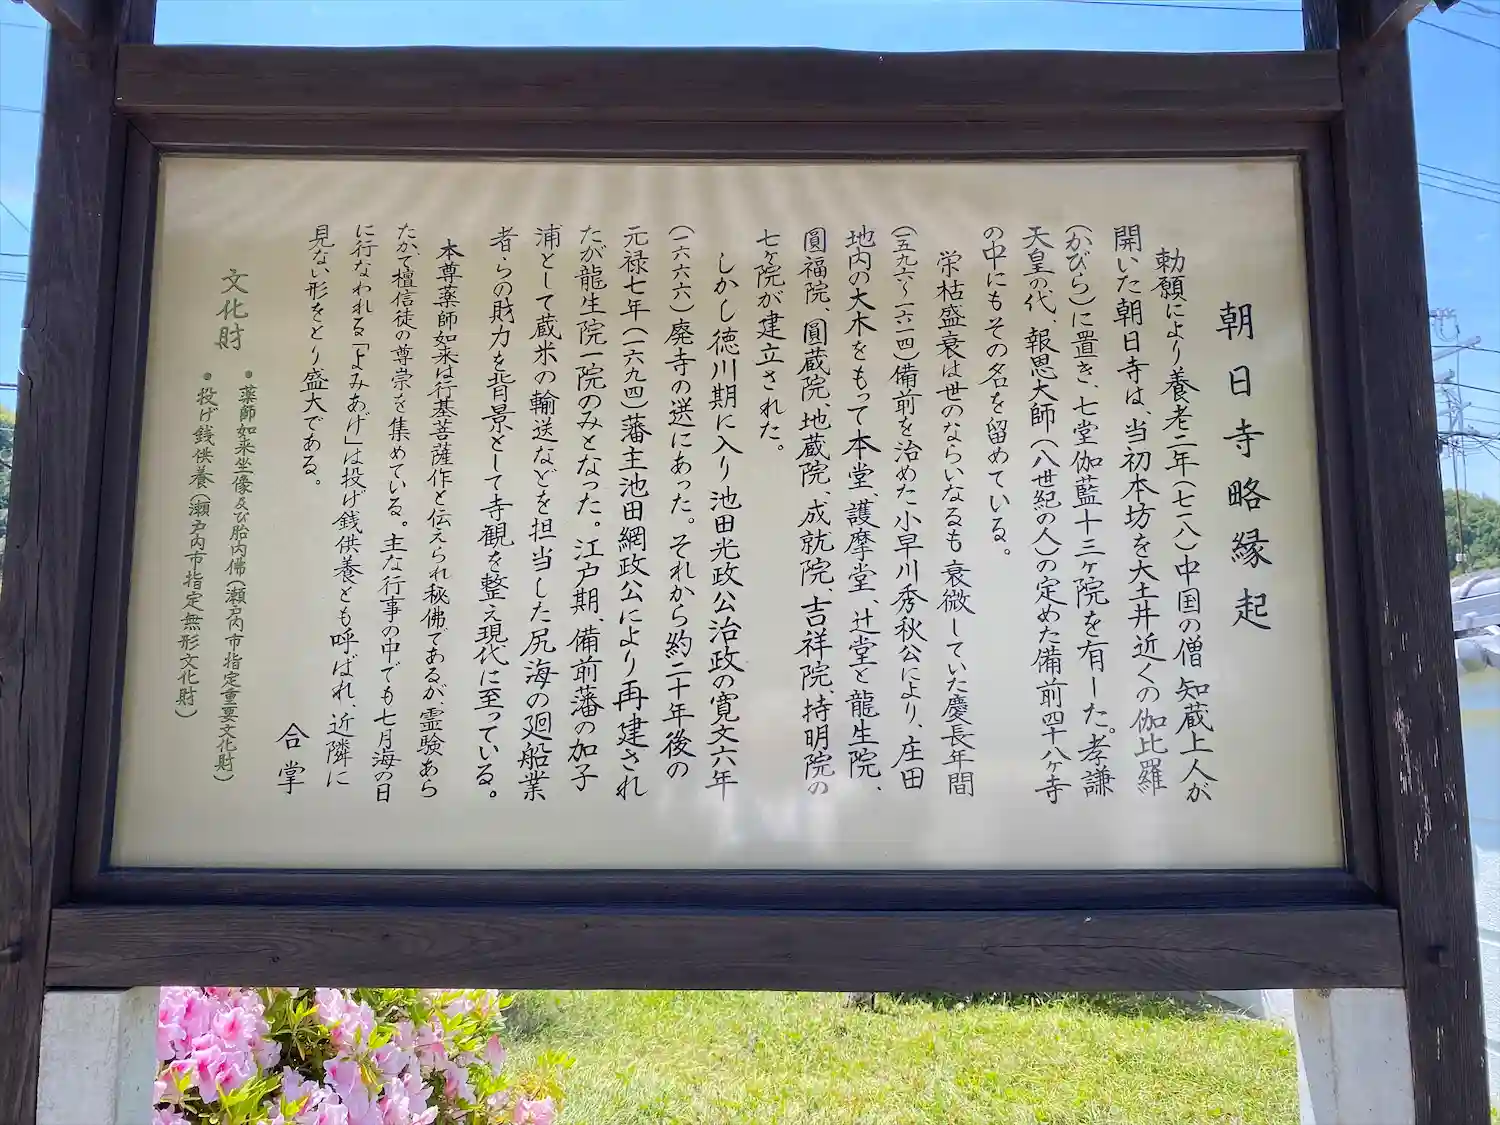 朝日寺略縁起
勅願により養老二年(七一八)中国の僧知蔵上人が
開いた朝日寺は、当初本坊を大土井近くの伽比羅
(かびら)に置き、七堂伽藍十三ヶ院を有した。孝謙
天皇の代、報恩大師(八世紀の人)の定めた備前四十八ヶ寺
の中にもその名を留めている。
栄枯盛衰は世のならいなるも衰微していた慶長年間
(一五九六〜一六一四)備前を治めた小早川秀秋公により、庄田
地内の大木をもって本堂、護摩堂、辻堂と龍生院、
圓福院、圓蔵院、地蔵院、成就院、吉祥院、持明院の
七ヶ院が建立された。
しかし徳川期に入り池田光政公治政の寛文六年
(一六六六)廃寺の送にあった。それから約二十年後の
元禄七年(一六九四)藩主池田網政公により再建され
たが龍生院一院のみとなった。江戸期、備前藩の加子
浦として蔵米の輸送などを担当した尻海の廻船業
者らの財力を背景として寺観を整え現代に至っている。
本尊薬師如来は行基菩薩作と伝えられ秘佛であるが、霊験あら
たかで檀信徒の尊崇を集めている。主な行事の中でも七月海の日
に行なわれる「よみあげ」は投げ銭供養とも呼ばれ、近隣に
見ない形をとり盛大である。
合掌
文化財
•薬師如来坐像及び胎内佛(瀬戸内市指定重要文化財)
•投げ銭供養(瀬戸内市指定無形文化財)